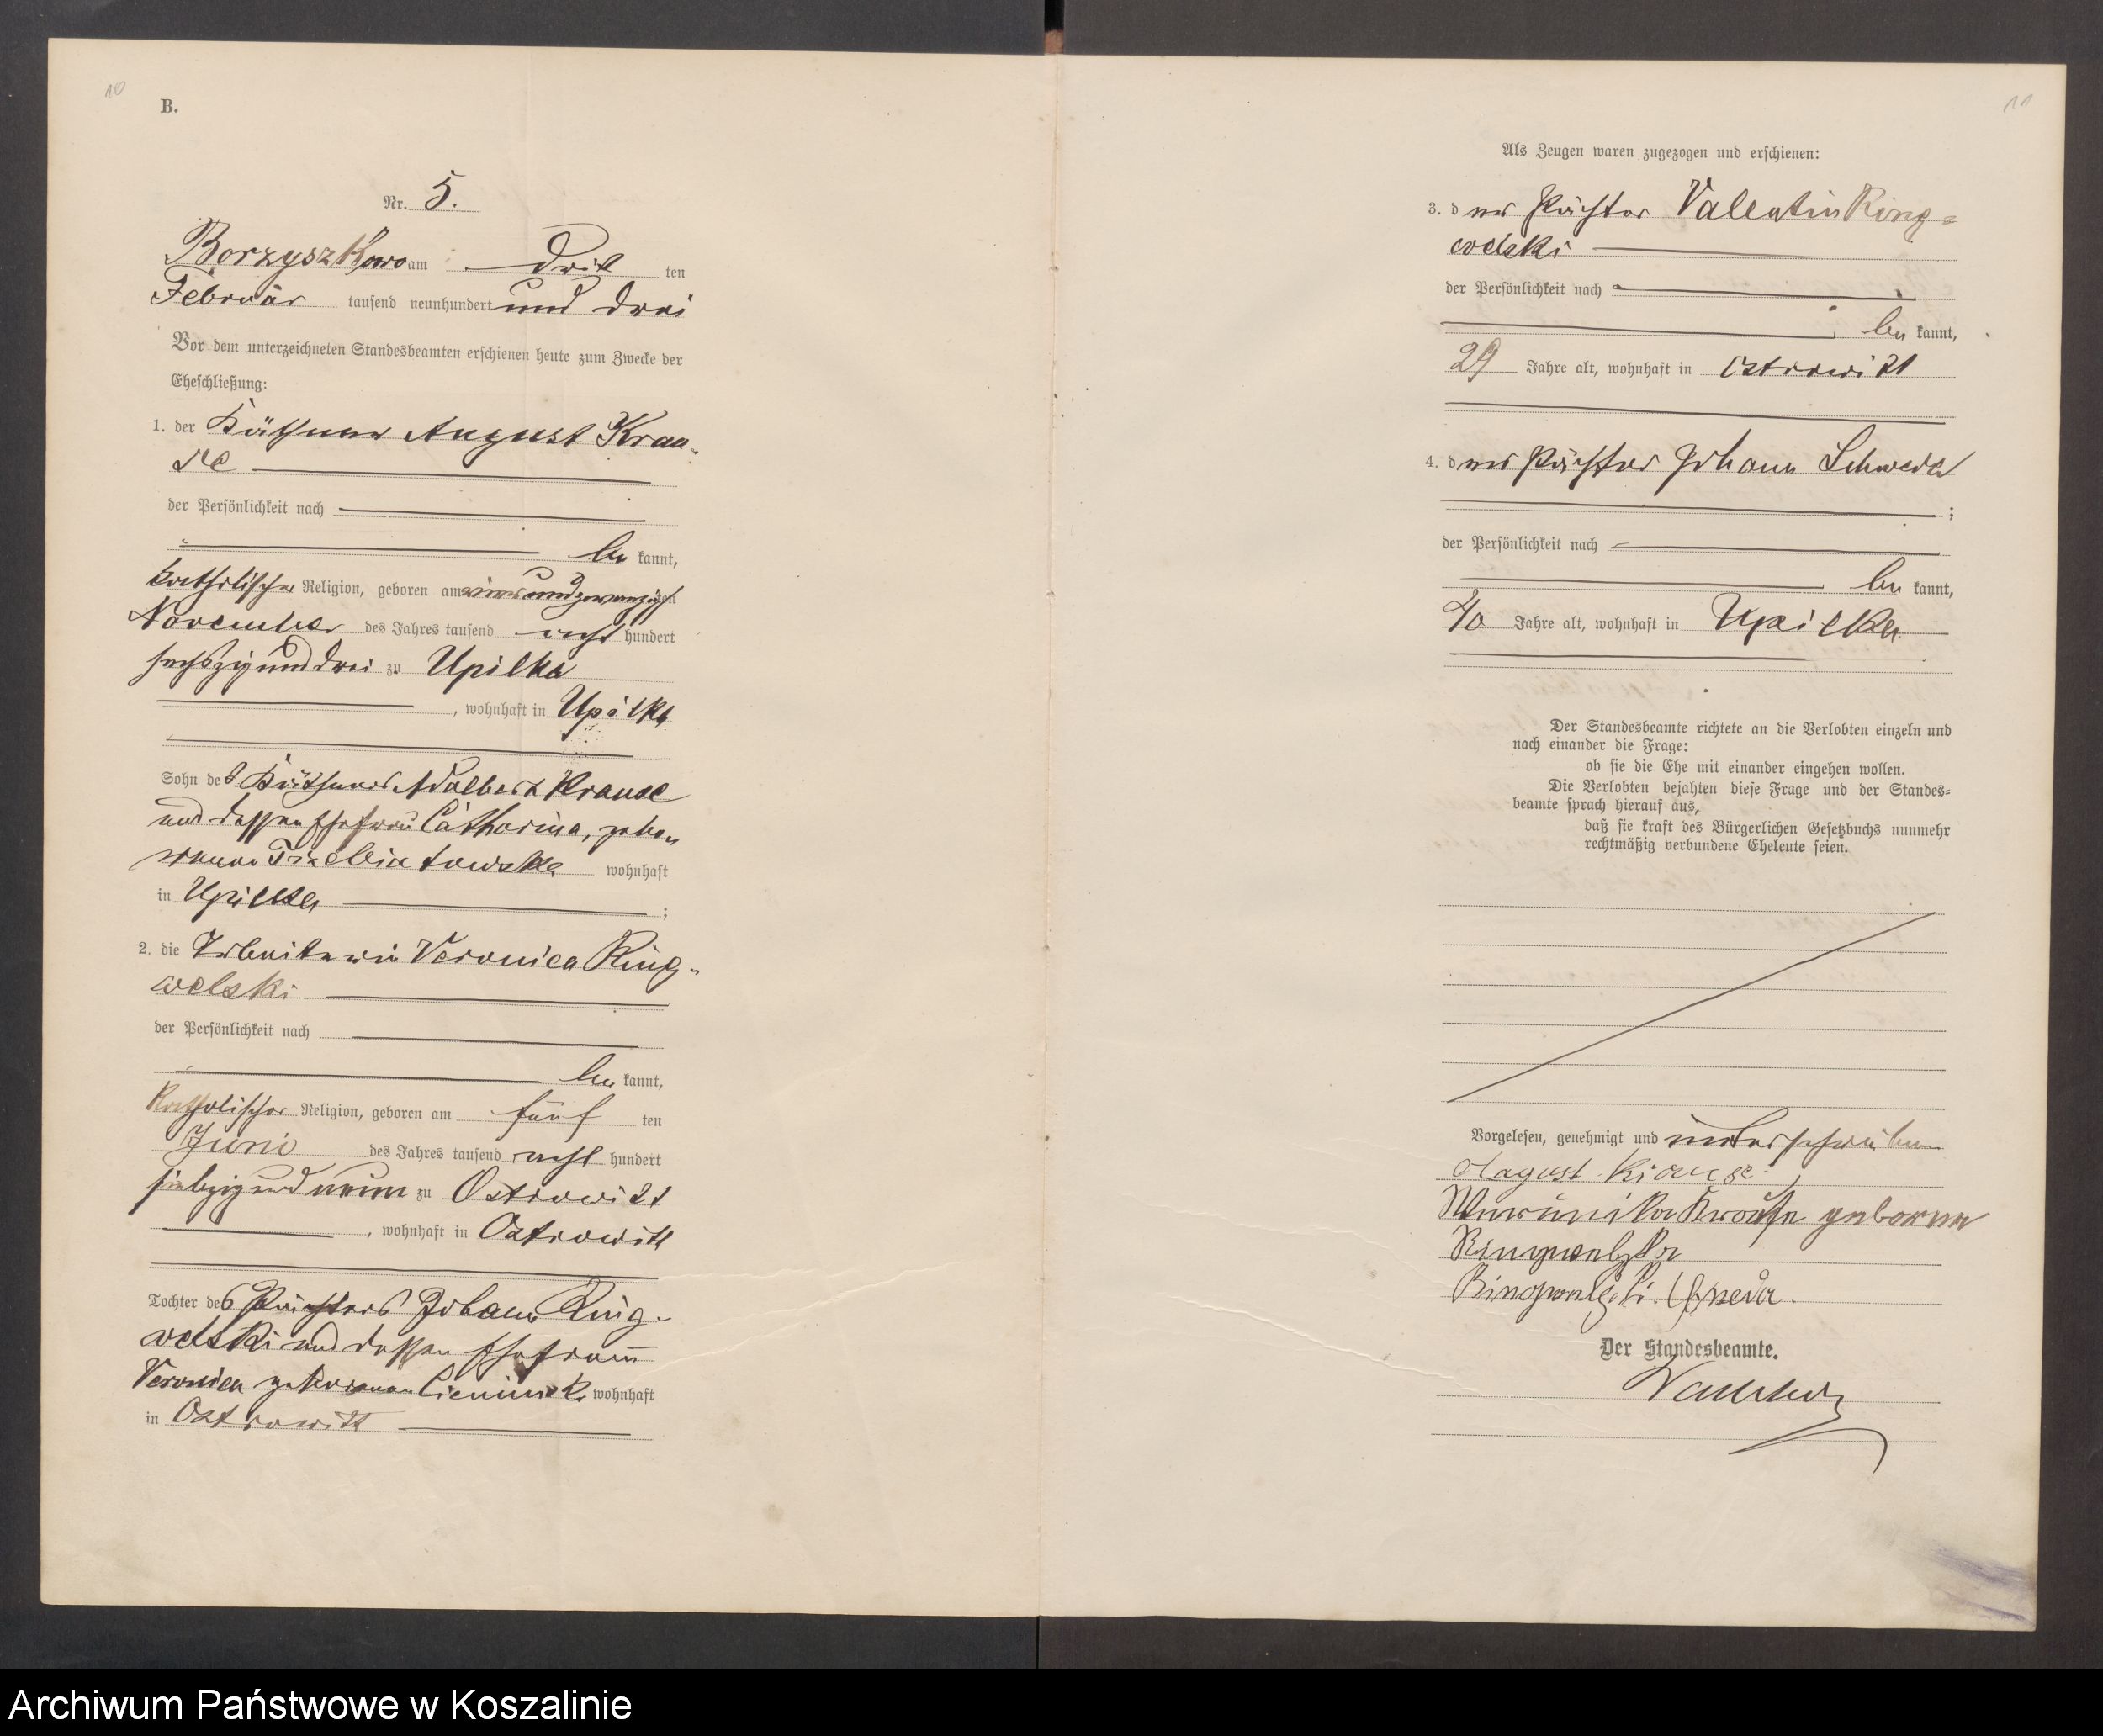 10
B.
Nr. 5.
Borzyszkowo am dritten
Februar tausend neunhundert und drei
Vor dem unterzeichneten Standesbeamten erschienen heute zum Zwecke der
Eheschließung:
1. der Käthner August Krau-
se
der Persönlichkeit nach
bekannt,
katholischer Religion, geboren am vierundzwanzigsten
November des Jahres tausend acht hundert
sechszig und drei zu Upilka
, wohnhaft in Upilka
Sohn des Käthners Adalbert Krause
und dessen Ehefrau Catharina, gebo-
wohnhaft
in Upilka ;
2. die Arbeiterin Veronica Ring-
welski
der Persönlichkeit nach
bekannt,
katholischer Religion, geboren am fünften
Juni des Jahres tausend acht hundert
siebzig und neun zu Ostrowitt
, wohnhaft in Ostrowitt
Tochter des Pächters Johann Ring-
welski und dessen Ehefrau
Veronica geborenen wohnhaft
in Ostrowitt
11
Als Zeugen waren zugezogen und erschienen:
3. der Pächter Valentin Ring=
welski
der Persönlichkeit nach
bekannt,
29 Jahre alt, wohnhaft in Ostrowitt
4. der Pächter Johann Schweda
;
der Persönlichkeit nach
bekannt,
40 Jahre alt, wohnhaft in Upilka
Der Standesbeamte richtete an die Verlobten einzeln und
nach einander die Frage:
ob sie die Ehe mit einander eingehen wollen.
Die Verlobten bejahten diese Frage und der Standes=
beamte sprach hierauf aus,
daß sie kraft des Bürgerlichen Gesetzbuchs nunmehr
rechtmäßig verbundene Eheleute seien.
Vorgelesen, genehmigt und unterschrieben
August Krause
Krause geborene
Der Standesbeamte.
Archiwum Państwowe w Koszalinie